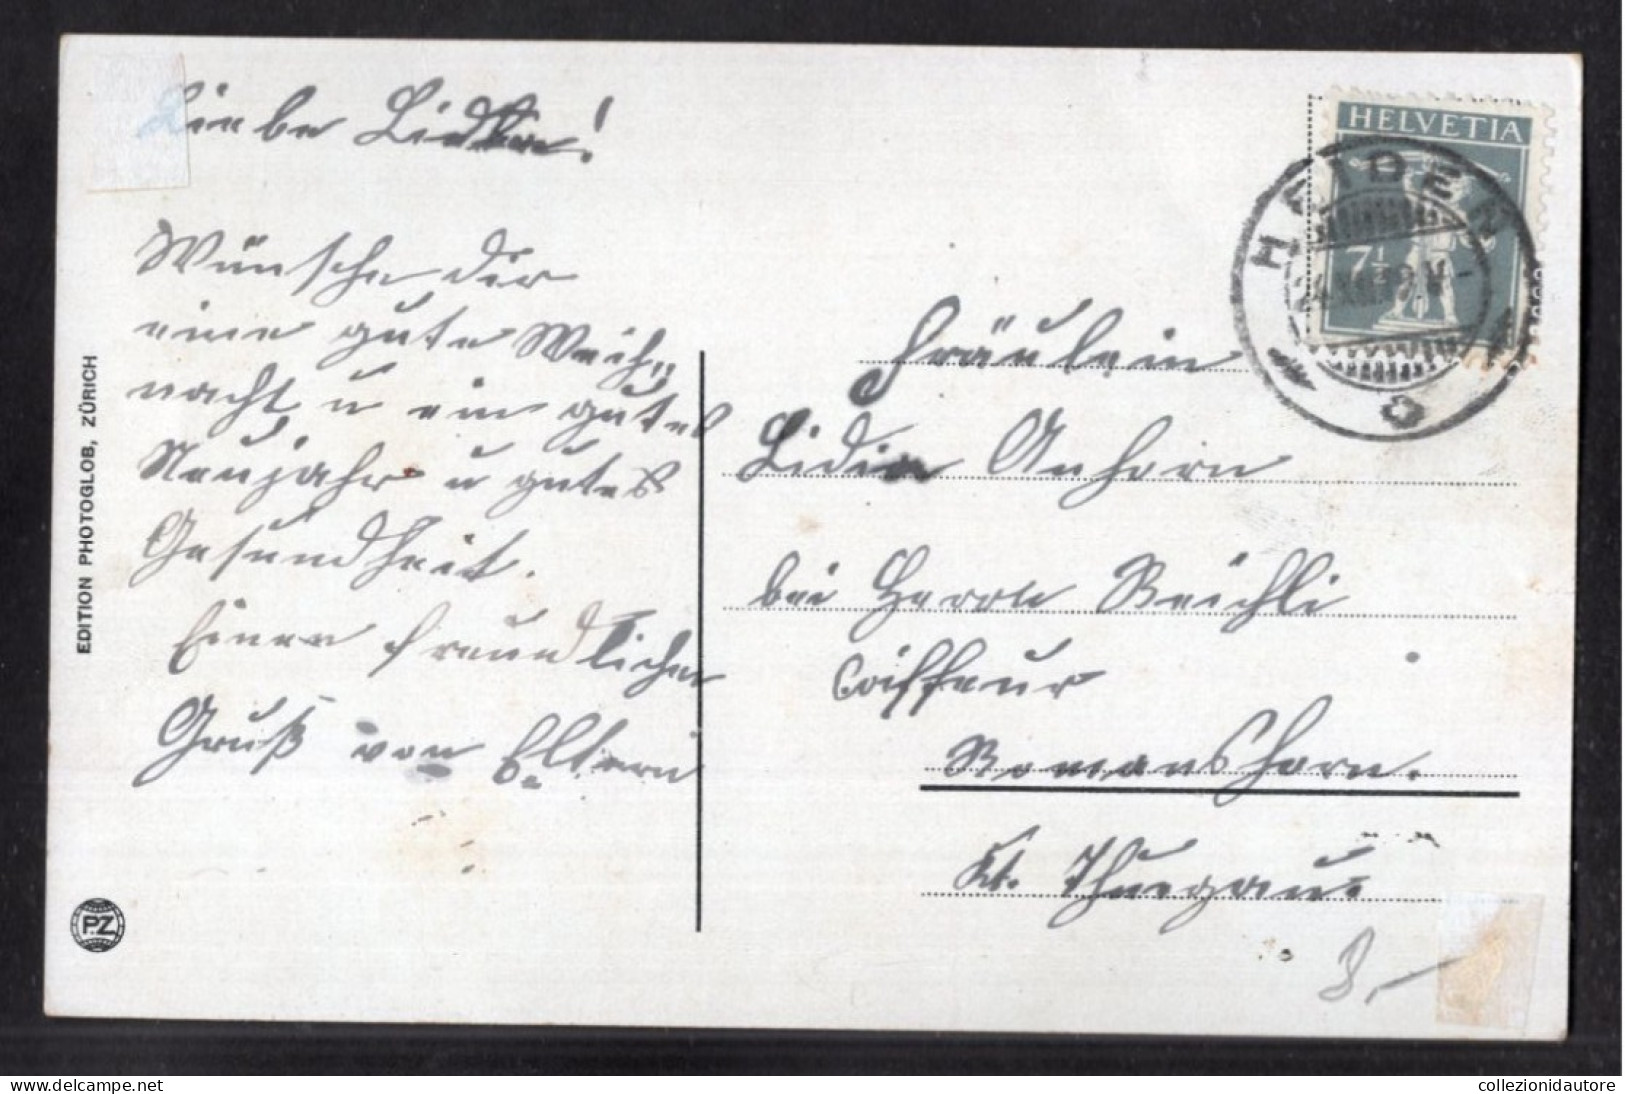 Liebe Lidia!
Wünsche dir
eine gute Weih„
nacht u ein gutes
Neujahr u gutes
Gesundheit.
Einen freundlichen
Gruß von Eltern
EDITION PHOTOGLOB, ZÜRICH
P.Z.
HELVETIA
7½
HEIDEN
Fräulein
Lidia Anhorn
bei Herrn Beichli
Coiffeur
Romanshorn.
Kt. Thurgau
8,-
delcampe.net
collezionidautore